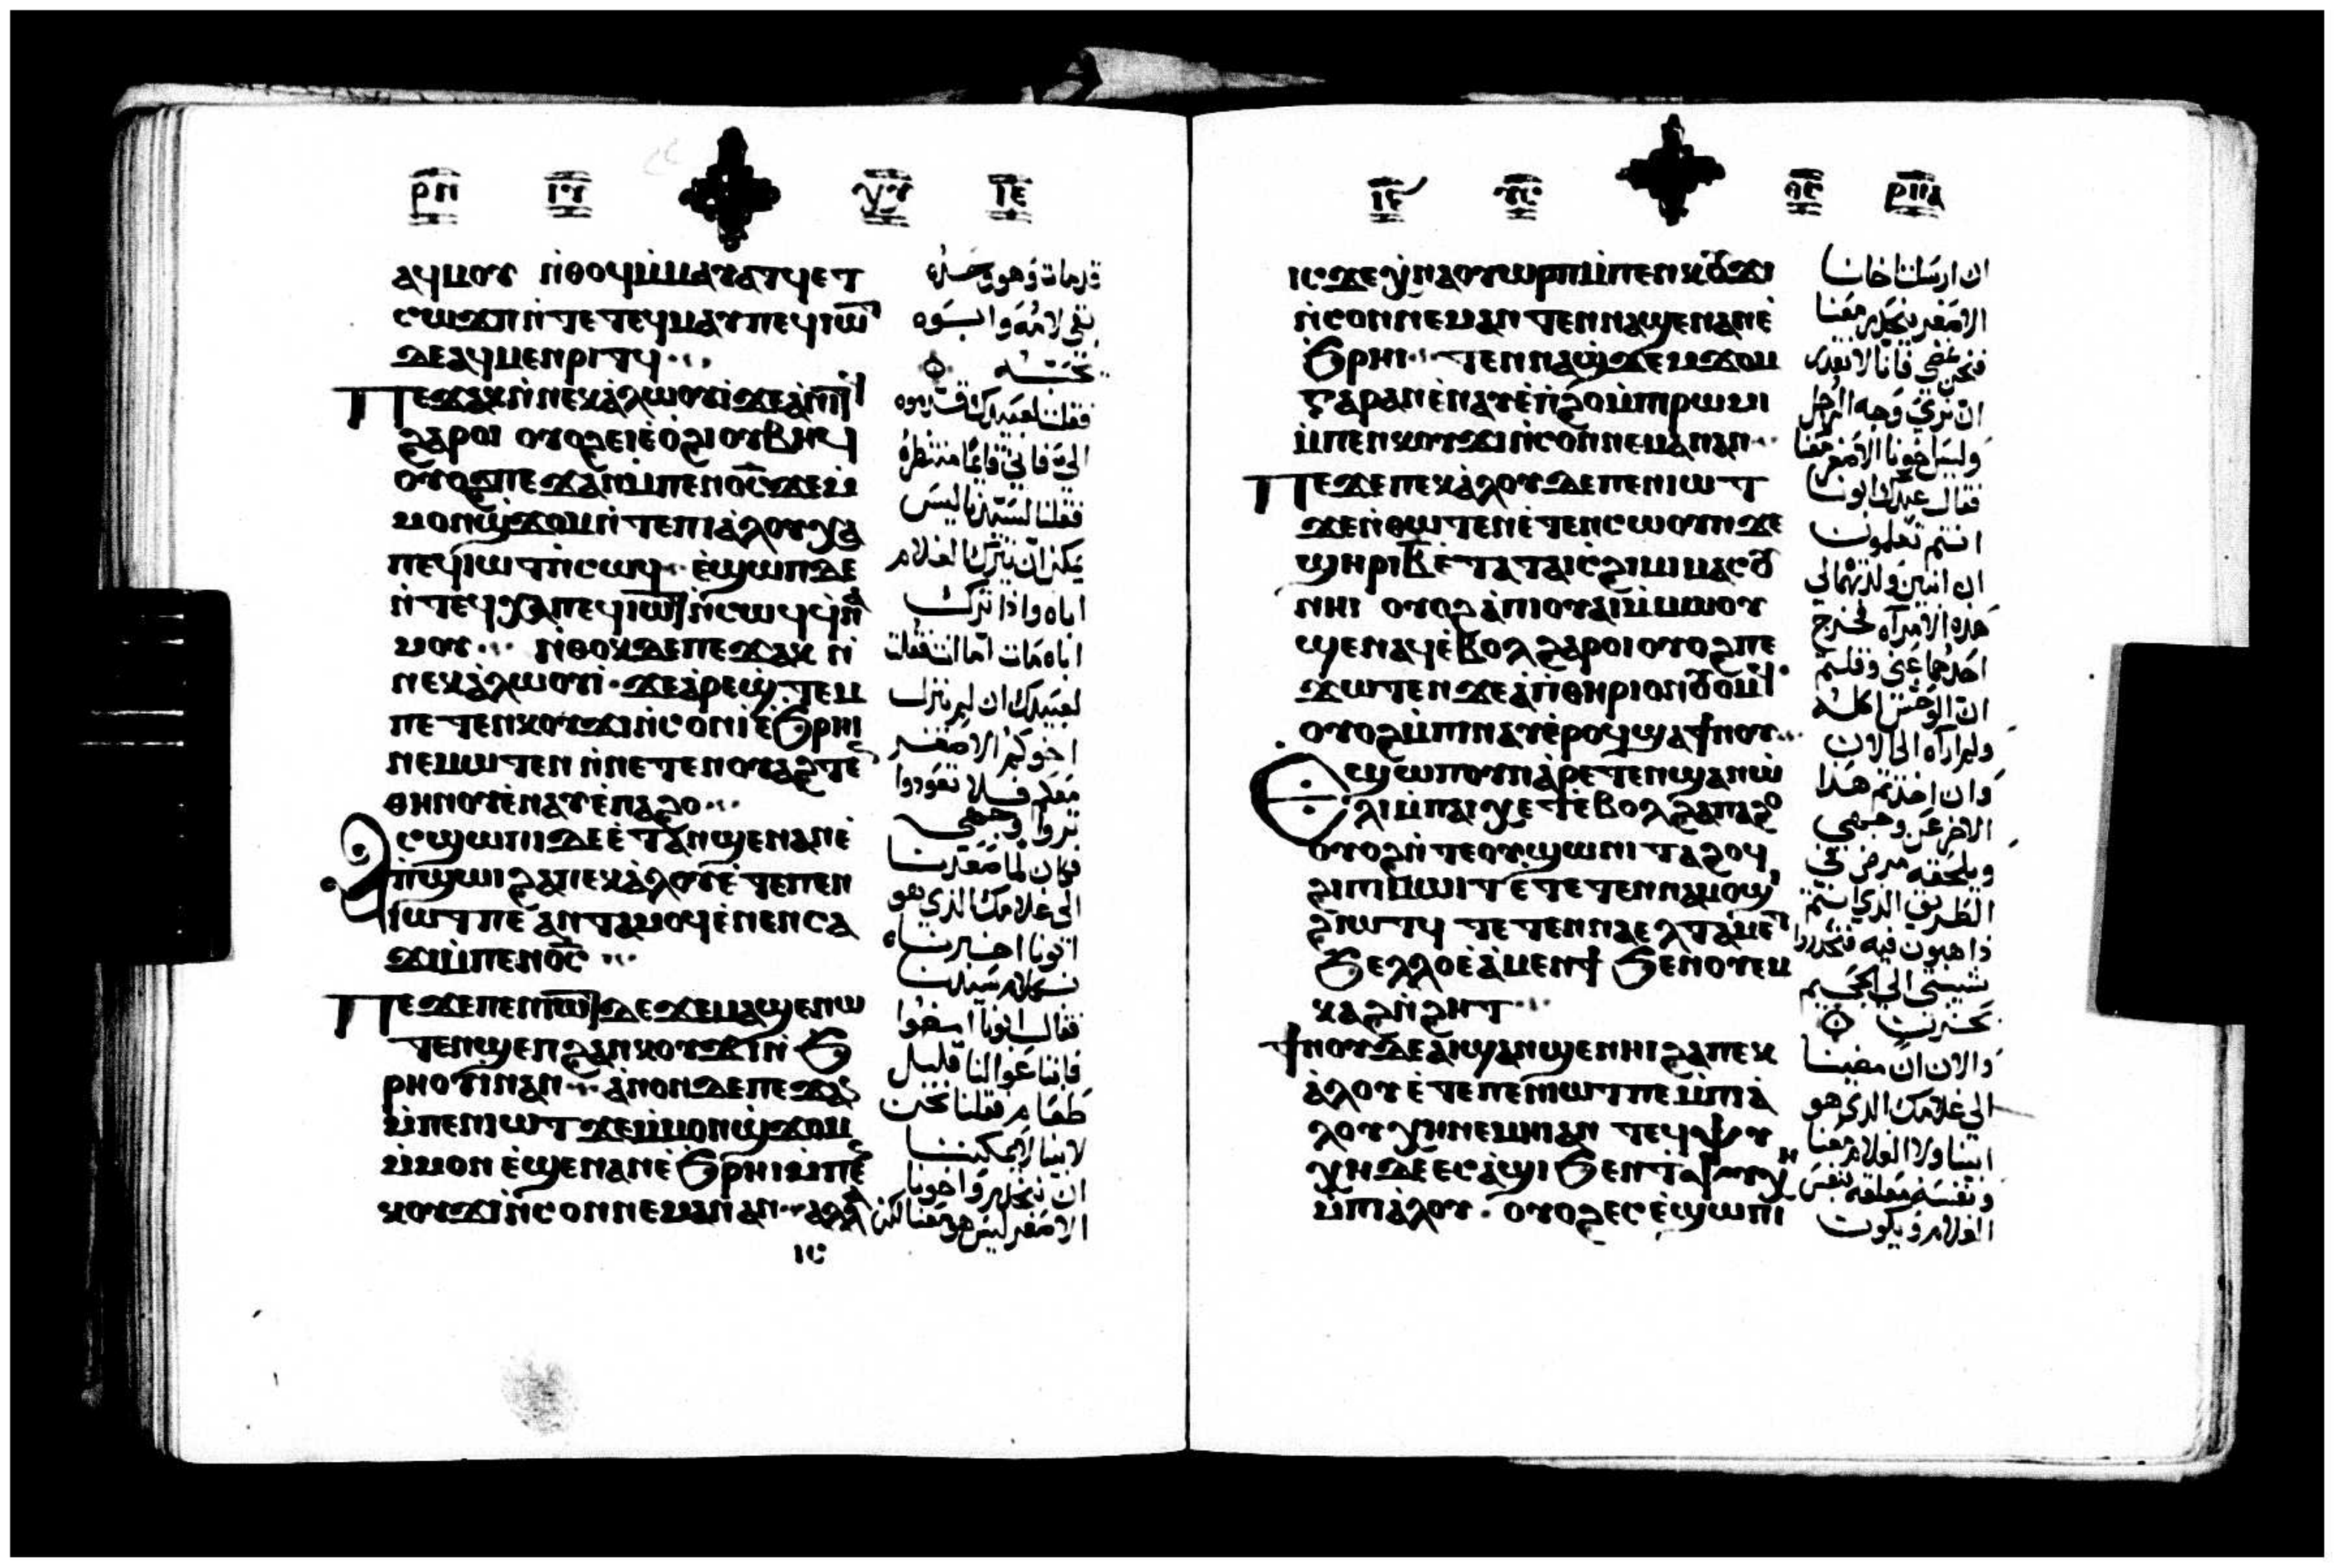 ⲣⲡ ⲓⲥ ⲭⲥ ⲓⲉ
ⲁϥⲙⲟⲩ ⲛ̇ⲑⲟϥⲙ̇ⲙⲁⲩⲁⲧϥⲉⲧ
ⲥⲱϫⲡ ⲛ̇ⲧⲉⲧⲉϥⲙⲁⲩ ⲡⲉϥⲓⲱⲧ
ⲇⲉⲁϥⲙⲉⲛⲣⲓⲧϥ
ⲡⲉϫⲁⲕ ⲛ̇ⲛⲉⲕⲁ̀ⲗⲱⲟⲩⲓ̀ ϫⲉⲁ̀ⲛⲓⲧϥ
ϩⲁⲣⲟⲓ ⲟⲩⲟϩ ⲉⲓⲉ̀ⲟ̀ϩⲓ ⲟⲩⲃⲏϥ
ⲟⲩⲟϩ ⲡⲉϫⲁⲛ ⲙ̇ⲡⲉⲛⲟ̅ⲥ̅ ϫⲉⲙ̇
ⲙⲟⲛϣ̇ϫⲟⲙ ⲛ̇ⲧⲉⲡⲓⲁ̀ⲗⲟⲩ ⲭⲁ
ⲡⲉϥⲓⲱⲧ ⲛ̇ⲥⲱϥ ⲉ̀ϣⲱⲡ ⲇⲉ
ⲛ̇ⲧⲉϥⲭⲁ ⲡⲉϥⲓⲱⲧ ⲛ̇ⲥⲱϥ ϥ̇ⲛⲁ
ⲙⲟⲩ ⲛ̇ⲑⲟⲕ ⲇⲉ ⲡⲉϫⲁⲕ ⲛ̇
ⲛⲉⲕⲁ̀ⲗⲱⲟⲩⲓ̀ ϫⲉⲁ̀ⲣⲉϣ̇ⲧⲉⲙ
ⲡⲉⲧⲉⲛⲕⲟⲩϫⲓ ⲛ̇ⲥⲟⲛ ⲓ̀ ⲉ̀ϧⲣⲏⲓ
ⲛⲉⲙⲱⲧⲉⲛ ⲛ̇ⲛⲉⲧⲉⲛⲟⲩⲁϩⲧⲉ
ⲑⲏⲛⲟⲩ ⲉ̀ⲛⲁⲩ ⲉ̀ⲡⲁϩⲟ
ⲁⲥϣⲱⲡⲓ ⲇⲉ ⲉ̀ⲧⲁⲛϣⲉⲛⲁⲛ ⲉ̀
ⲡ̇ϣⲱⲓ ϩⲁ ⲡⲉⲕⲁ̀ⲗⲟⲩ ⲉ̀ⲧⲉ ⲡⲉⲛ
ⲓⲱⲧ ⲡⲉ ⲁⲛⲧⲁⲙⲟϥ ⲉ̀ⲛⲉⲛⲥⲁ
ϫⲓ ⲙ̇ⲡⲉⲛⲟ̅ⲥ̅
ⲡⲉϫⲉ ⲡⲉⲛⲓⲱⲧ ⲇⲉ ϫⲉⲙⲁϣⲉⲛⲱ
ⲧⲉⲛ ϣⲉⲡ ϩⲁⲛⲕⲟⲩϫⲓ ⲛ̇ϧ
ⲣⲏⲟⲩⲓ ⲛⲁⲛ ⲁ̀ⲛⲟⲛ ⲇⲉ ⲡⲉϫⲁⲥ
ⲙ̇ⲡⲉⲛⲓⲱⲧ ϫⲉⲙ̇ⲙⲟⲛϣ̇ϫⲟⲙ
ⲙ̇ⲙⲟⲛ ⲉ̀ϣⲉⲛⲁⲛ ⲉ̀ϧⲣⲏⲓ ⲙ̇ⲡⲉ
ⲕⲟⲩϫⲓ ⲛ̇ⲥⲟⲛ ⲛⲉⲙⲁⲛ ⲁⲛ ⲁⲗⲗⲁ
ⲓⲥ
قد مات وهو وحده
بقى لامه وابوه
يحبه
فقلت لعبيدك قدموه
الي فاني قايما منتظره
فقلنا لسيدنا ليس
يمكن ان يترك الغلام
اباه واذا ترك
اباه مات اما انت فقلت
لعبيدك ان لم ينزل
اخوكم الاصغر
معكم فلا تعودوا
تروا وجهي
فكان لما صعدنا
الى غلامك الذي هو
ابونا اخبرناه
بكلام سيدنا
فقال ابونا امضوا
فابتاعوا لنا قليل
طعام فقلنا نحن
لابينا لا يمكننا
ان ننحدر واخونا
الاصغر ليس هو معنا لكن
ⲓⲥ ⲡⲥ ⲑⲥ ⲣⲡⲁ
ⲓⲥϫⲉ ⲭ̇ⲛⲁⲟⲩⲱⲣⲡ ⲙ̇ⲡⲉⲛⲕⲟⲩϫⲓ
ⲛ̇ⲥⲟⲛ ⲛⲉⲙⲁⲛ ⲧⲉⲛⲛⲁϣⲉⲛⲁⲛ ⲉ̀
ϧⲣⲏⲓ ⲧⲉⲛⲛⲁϣ̇ϫⲉⲙϫⲟⲙ
ⲅⲁⲣ ⲁⲛ ⲉ̀ⲛⲁⲩ ⲉ̀ⲡ̇ϩⲟ ⲙ̇ⲡⲓⲣⲱⲙⲓ
ⲙ̇ⲡⲉⲛⲕⲟⲩϫⲓ ⲛ̇ⲥⲟⲛ ⲛⲉⲙⲁⲛ ⲁⲛ
ⲡⲉϫⲉ ⲡⲉⲕⲁ̀ⲗⲟⲩ ⲇⲉ ⲡⲉⲛⲓⲱⲧ
ϫⲉ ⲛ̇ⲑⲱⲧⲉⲛ ⲉ̀ⲧⲉⲛⲥⲱⲟⲩⲛ ϫⲉ
ϣⲏⲣⲓ ⲃ̅ ⲉ̀ⲧⲁ ⲧⲁⲓⲥ̀ϩⲓⲙⲓ ⲙⲁⲥⲟⲩ
ⲛⲏⲓ ⲟⲩⲟϩ ⲁ̀ⲡⲓⲟⲩⲁⲓ ⲙ̇ⲙⲱⲟⲩ
ϣⲉⲛⲁϥ ⲉ̀ⲃⲟⲗ ϩⲁⲣⲟⲓ ⲟⲩⲟϩ ⲡⲉ
ϫⲱⲧⲉⲛ ϫⲉⲁ̀ⲡⲓⲑⲏⲣⲓⲟⲛ ⲟⲩⲟⲙϥ
ⲟⲩⲟϩ ⲙ̇ⲡⲓⲛⲁⲩ ⲉ̀ⲣⲟϥ ϣⲁ ϯⲛⲟⲩ
ⲉϣⲱⲡ ⲟⲩⲛ ⲁ̀ⲣⲉⲧⲉⲛϣⲁⲛⲱ̀
ⲗⲓ ⲙ̇ⲡⲁⲓⲭⲉⲧ ⲉ̀ⲃⲟⲗ ϩⲁ ⲡⲁϩⲟ
ⲟⲩⲟϩ ⲛ̇ⲧⲉ ⲟⲩϣⲱⲛⲓ ⲧⲁϩⲟϥ
ϩⲓ ⲡⲓⲙⲱⲓⲧ ⲉ̀ⲧⲉⲧⲉⲛⲛⲁⲙⲟϣⲓ
ϩⲓⲱⲧϥ ⲧⲉⲧⲉⲛⲛⲁⲉⲗ ⲧⲁⲙⲉⲧ
ϧⲉⲗⲗⲟ ⲉ̀ⲁ̀ⲙⲉⲛϯ ϧⲉⲛ ⲟⲩⲉⲙ
ⲕⲁϩ ⲛ̇ϩⲏⲧ
ϯⲛⲟⲩ ⲇⲉ ⲁⲓϣⲁⲛϣⲉⲛⲏⲓ ϩⲁ ⲡⲉⲕ
ⲁ̀ⲗⲟⲩ ⲉ̀ⲧⲉ ⲡⲉⲛⲓⲱⲧ ⲡⲉ ⲙ̇ⲡⲓⲁ̀
ⲗⲟⲩ ⲭⲏ ⲛⲉⲙⲏⲓ ⲁⲛ ⲧⲉϥⲯⲩ
ⲭⲏ ⲇⲉ ⲉⲥⲁ̀ϣⲓ ϧⲉⲛ ⲧⲯⲩⲭⲏ
ⲙ̇ⲡⲓⲁ̀ⲗⲟⲩ ⲟⲩⲟϩ ⲉⲥⲉ̀ϣⲱⲡⲓ
ان ارسلت اخانا
الاصغر ننحدر معنا
فنحن نمضي فانا لا نقدر
ان نرى وجه الرجل
وليس اخونا الاصغر معنا
فقال عبدك ابونا
انتم تعلمون
ان اثنين ولدتهما لي
هذه الامراه فخرج
احدهما عني وقلتم
ان الوحش اكله
ولم اراه الى الان
وان اخذتم هذا
الاخر عن وجهي
ويلحقه مرض في
الطريق الذي انتم
ذاهبون فيه فتحدروا
شيبتي الى الجحيم
بحزن
والان ان مضينا
الى غلامك الذي هو
ابينا ولا الغلام معنا
ونفسه معلقه بنفس
الغلام ويكون